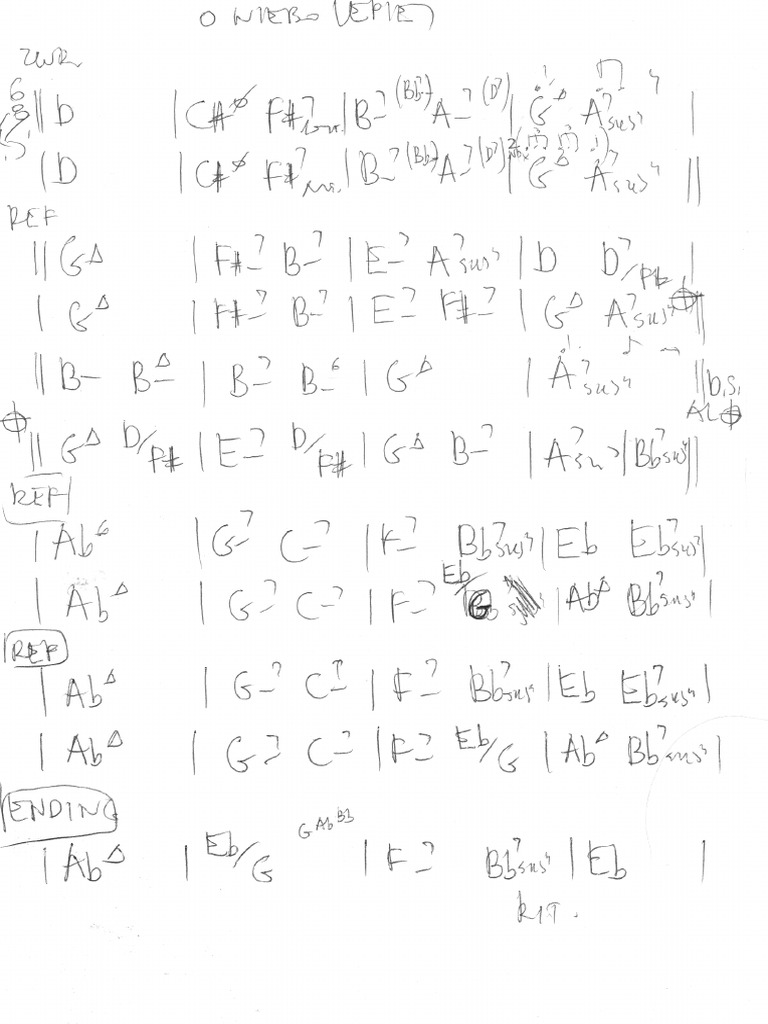 O NIEBO LEPIEJ
ZWR
6 8 || D | C#ø F#7 | B-7 (Bb7) A-7 (D7) | GΔ A7sus4 |
| D | C#ø F#7 | B-7 (Bb7) A-7 (D7) | GΔ A7sus4 ||
REF
|| GΔ | F#-7 B-7 | E-7 A7sus4 | D D7/F# |
| GΔ | F#-7 B-7 | E-7 F#-7 | GΔ A7sus4 𝄌 ||
|| B- B-Δ | B-7 B-6 | GΔ | A7sus4 || D.S. AL 𝄌
𝄌 || GΔ D/F# | E-7 D/F# | GΔ B-7 | A7sus | Bb7sus4 ||
REF
| Ab6 | G-7 C-7 | F-7 Bb7sus4 | Eb Eb7sus4 |
| AbΔ | G-7 C-7 | F-7 Eb/G | AbΔ Bb7sus4 |
REF
| AbΔ | G-7 C-7 | F-7 Bb7sus4 | Eb Eb7sus4 |
| AbΔ | G-7 C-7 | F-7 Eb/G | AbΔ Bb7sus4 |
ENDING
| AbΔ | Eb/G G Ab Bb | F-7 Bb7sus4 | Eb |
RIT.